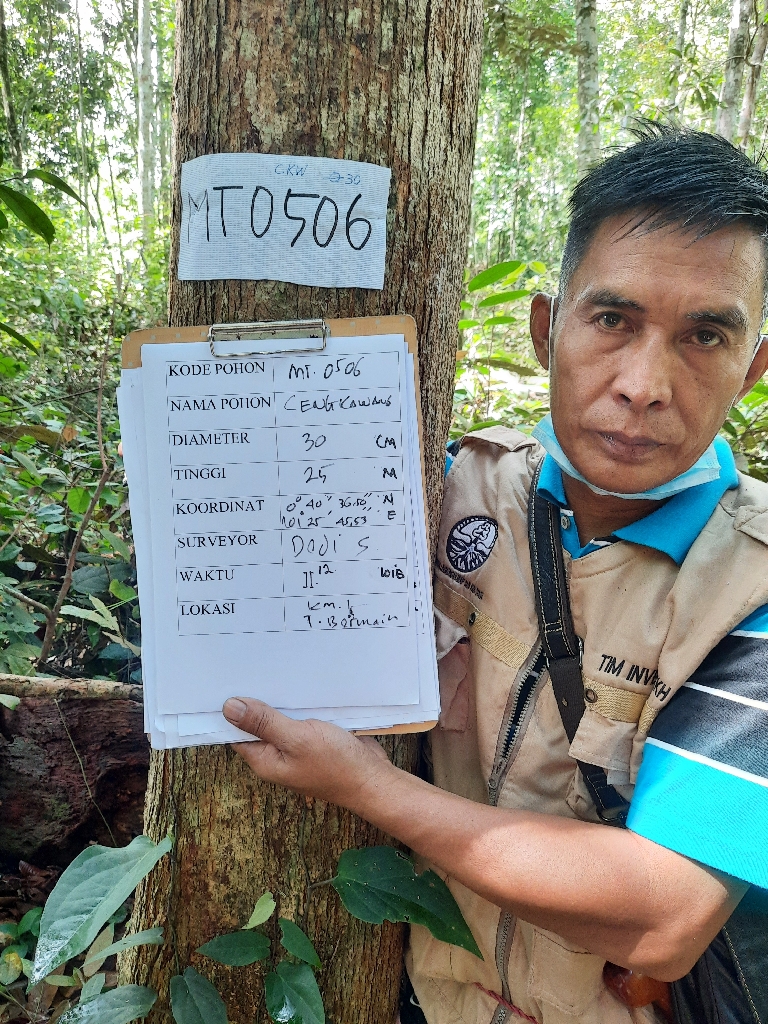 C.KW 2-30
MT0506
KODE POHON MT. 0506
NAMA POHON CENGKAWANG
DIAMETER 30 CM
TINGGI 25 M
KOORDINAT 0° 40" 36.50" N
101 25' 45,53" E
SURVEYOR Dodi S
WAKTU 11.12 WIB
LOKASI Km. 1
T. Bermain
TIM INV